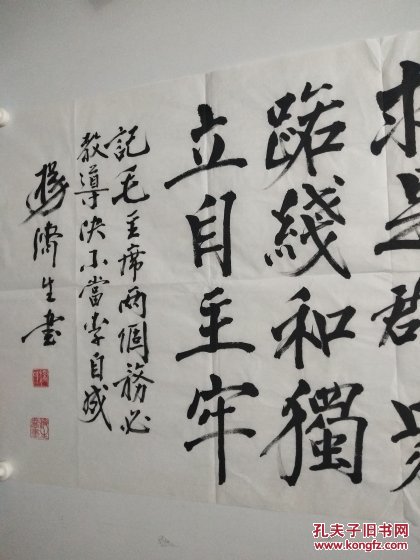 求是群
路綫和獨
立自主牢
記毛主席兩個務必
教導决不當李自成
楊濟生書
孔夫子旧书网